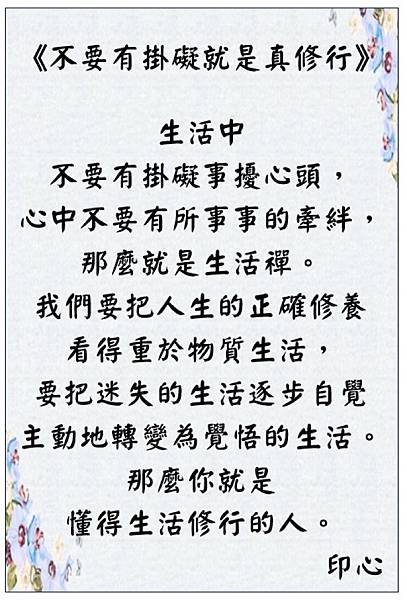 《不要有掛礙就是真修行》
生活中
不要有掛礙事擾心頭，
心中不要有所事事的牽絆，
那麼就是生活禪。
我們要把人生的正確修養
看得重於物質生活，
要把迷失的生活逐步自覺
主動地轉變為覺悟的生活。
那麼你就是
懂得生活修行的人。
印心